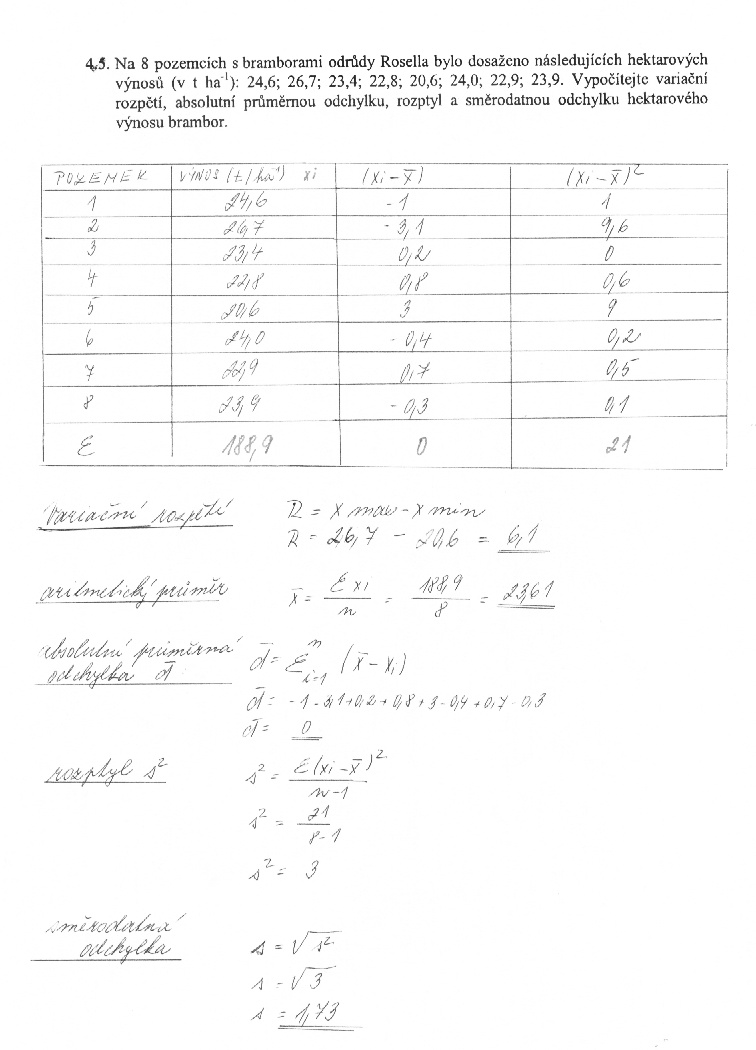 4.5. Na 8 pozemcích s bramborami odrůdy Rosella bylo dosaženo následujících hektarových
výnosů (v t ha⁻¹): 24,6; 26,7; 23,4; 22,8; 20,6; 24,0; 22,9; 23,9. Vypočítejte variační
rozpětí, absolutní průměrnou odchylku, rozptyl a směrodatnou odchylku hektarového
výnosu brambor.
POZEMEK VÝNOS (t/ha⁻¹) xi (xi - x̄) (xi - x̄)²
1 24,6 - 1 1
2 26,7 - 3,1 9,6
3 23,4 0,2 0
4 22,8 0,8 0,6
5 20,6 3 9
6 24,0 - 0,4 0,2
7 22,9 0,7 0,5
8 23,9 - 0,3 0,1
Σ 188,9 0 21
Variační rozpětí R = x max - x min
R = 26,7 - 20,6 = 6,1
aritmetický průměr x̄ = Σxi / n = 188,9 / 8 = 23,61
absolutní průměrná
odchylka d̄ d̄ = Σⁿᵢ₌₁ (x̄ - xi)
d̄ = - 1 - 3,1 + 0,2 + 0,8 + 3 - 0,4 + 0,7 - 0,3
d̄ = 0
rozptyl s² s² = Σ(xi - x̄)² / n-1
s² = 21 / 8-1
s² = 3
směrodatná
odchylka s = √s²
s = √3
s = 1,73